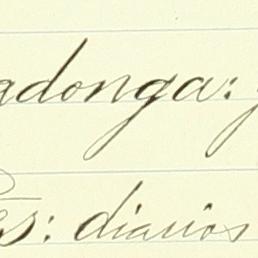 adonga:
es: diarios